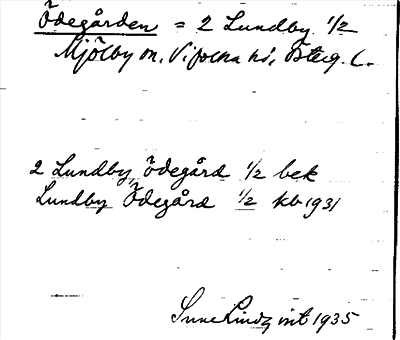 Ödegården = 2 Lundby 1/2
Mjölby sn, Vifolka hd,Österg. l.
2 Lundby, Ödegård 1/2 bek
Lundby Ödegård 1/2 kb 1931
Sune Lindq int 1935